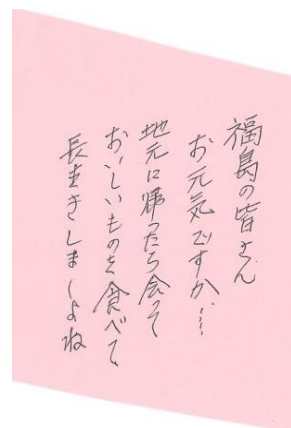 福島の皆さん
お元気ですか…
地元に帰ったら会って
おいしいものを食べて
長生きしましょよね